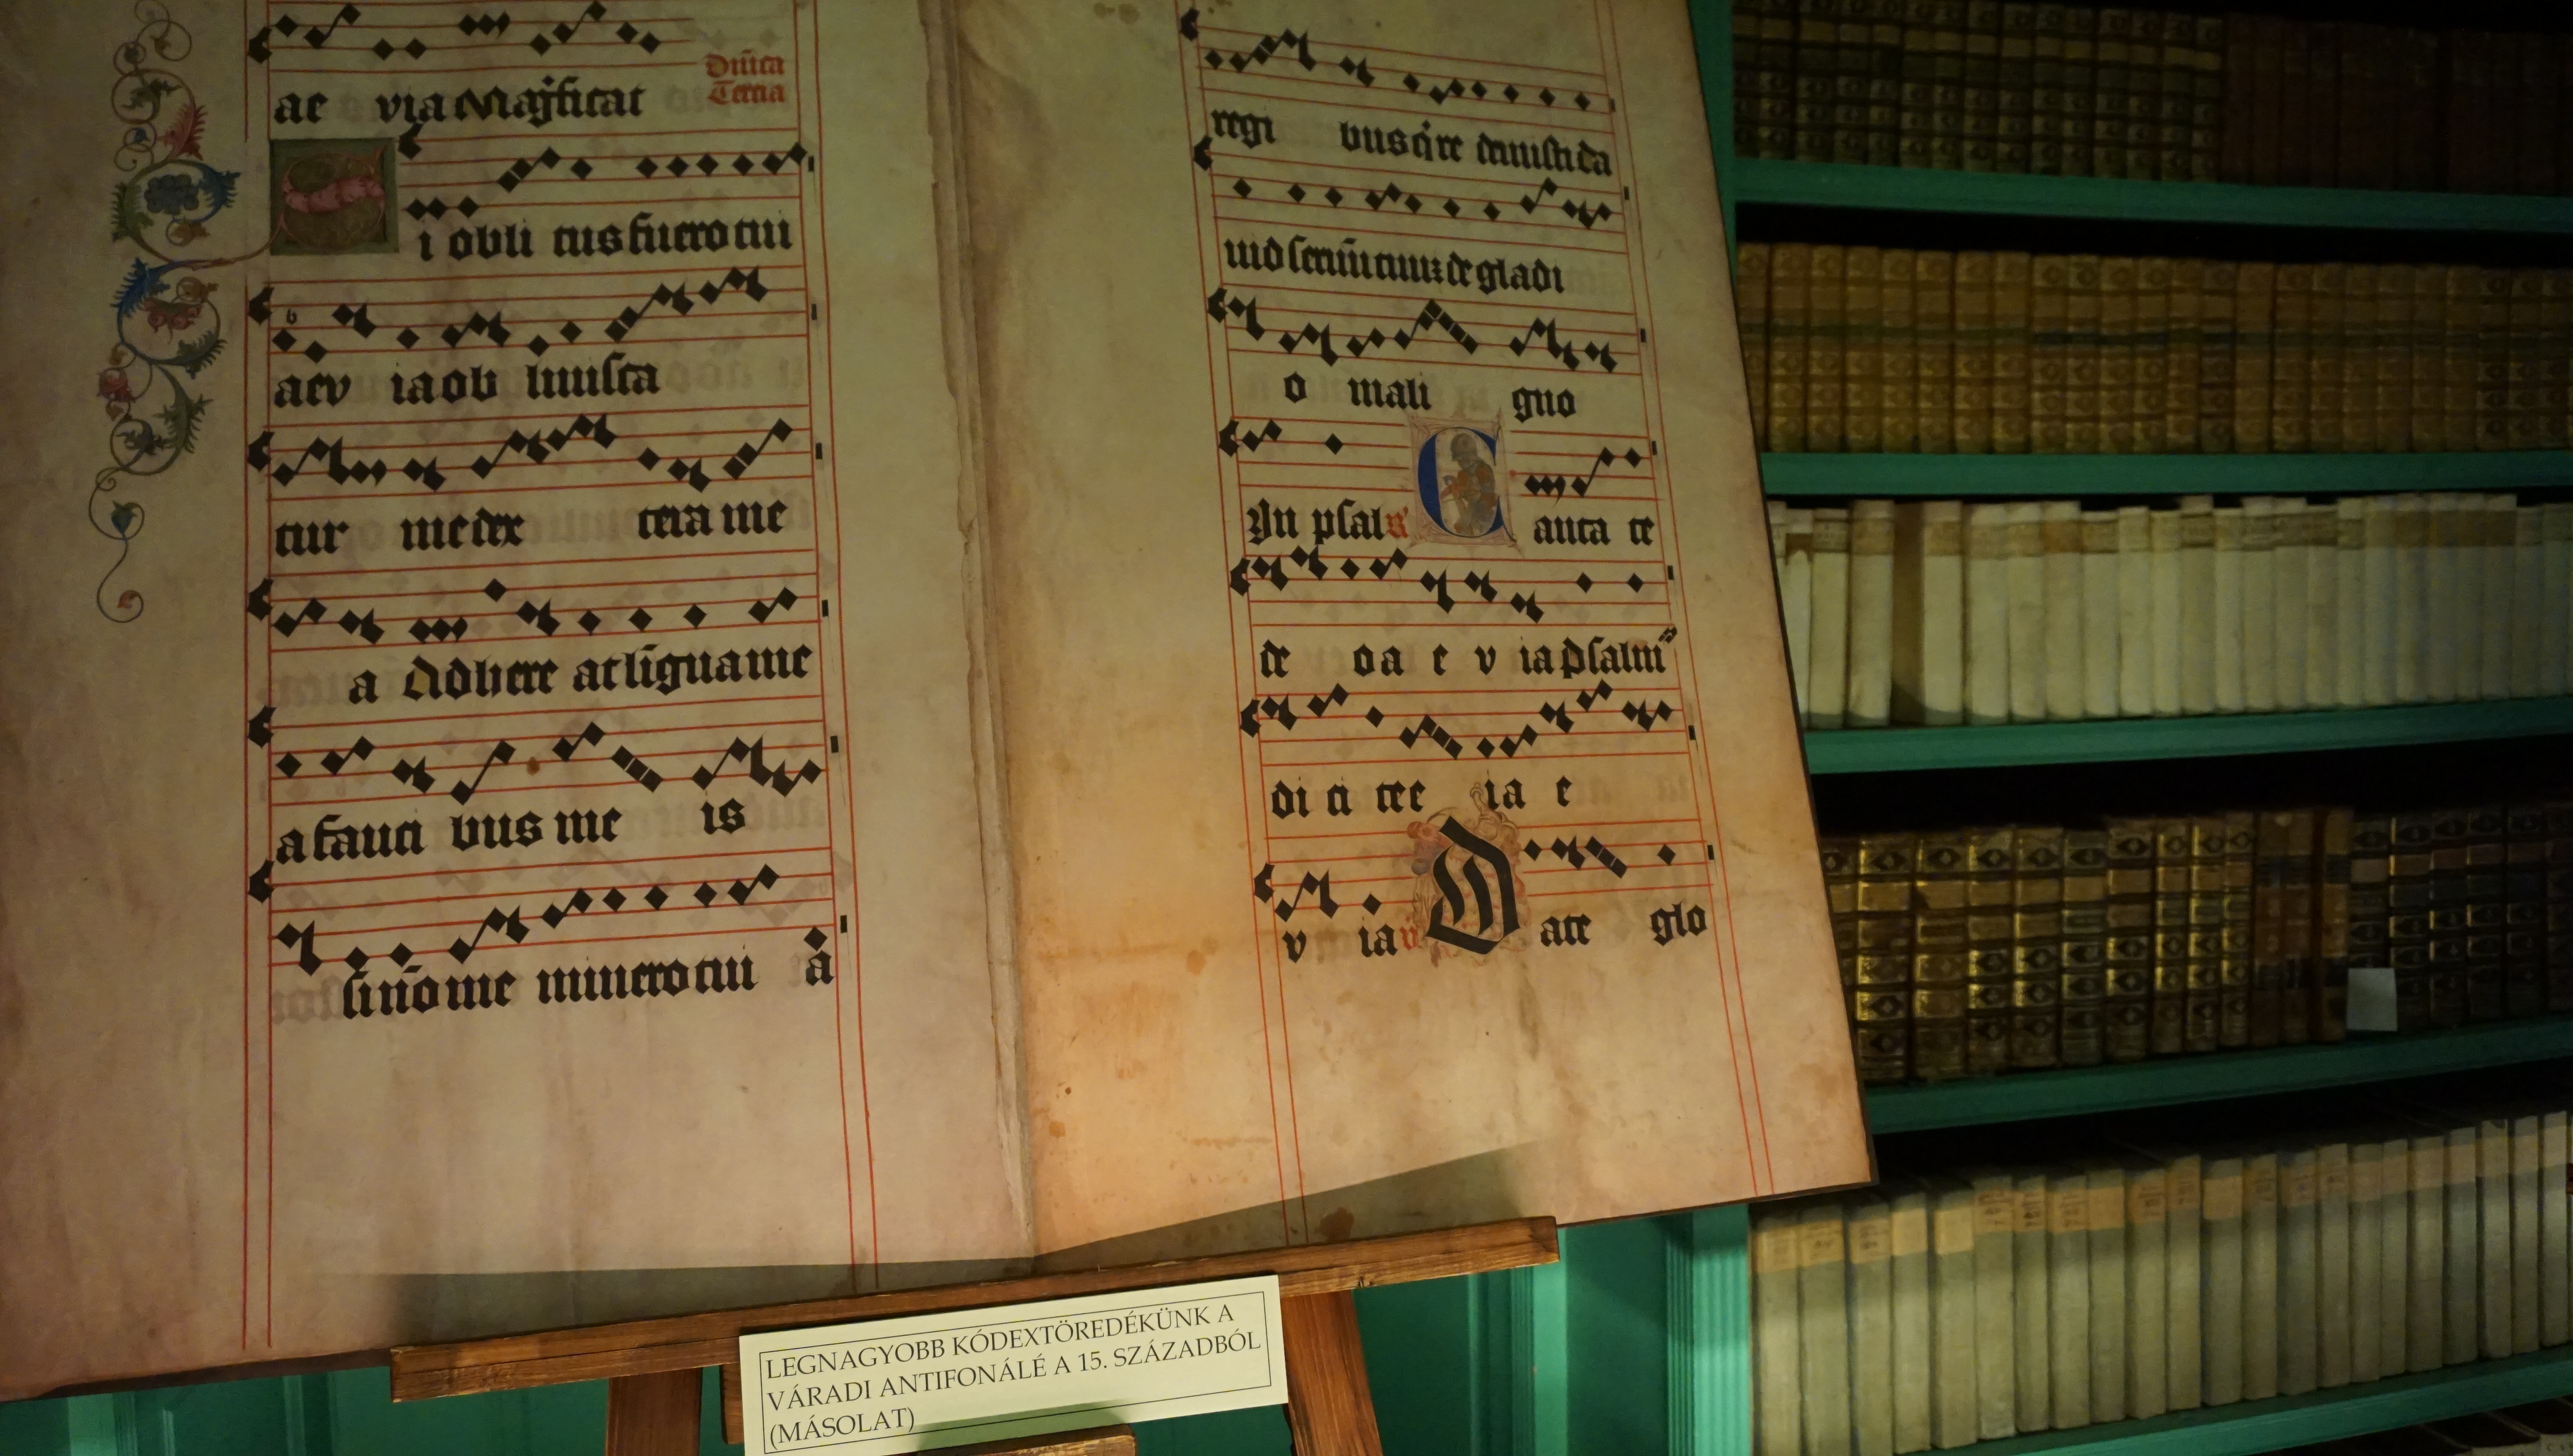 ae via Magficat
Dn̄ica
Tertia
Si obli tus fuero tui
aev ia ob liuisca
tur me dex tera me
a Adhere at ligua me
a fauci bus me is
si nō me minero tui a
regi bus q̇ re demisti da
uid seruū tuuꝫ de gladi
o mali gno
In psal Canta te
de o a e v ia psalm
di ci te e ia e
v ia v Date glo
LEGNAGYOBB KÓDEXTÖREDÉKÜNK A
VÁRADI ANTIFONÁLÉ A 15. SZÁZADBÓL
(MÁSOLAT)